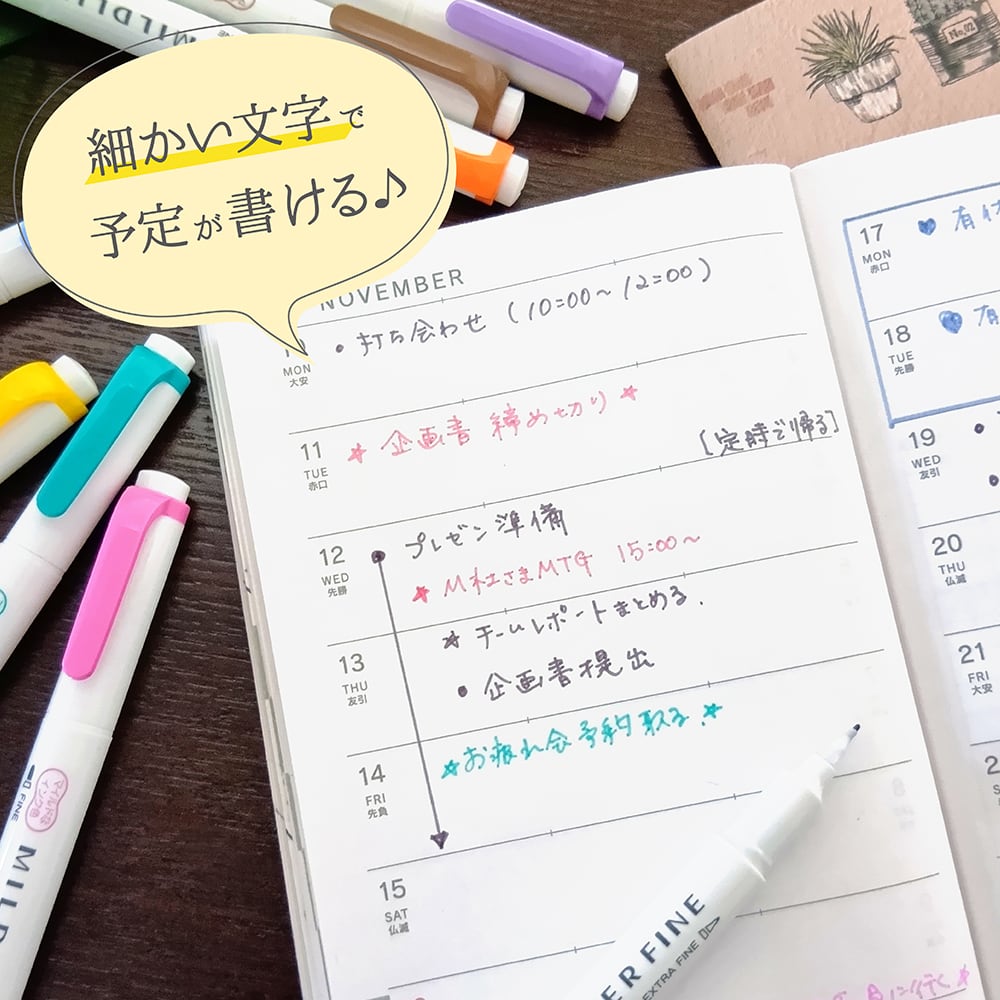 細かい文字で
予定が書ける♪
No.02
NOVEMBER
MON
大安
・打ち合わせ (10:00～12:00)
11
TUE
赤口
★企画書 締め切り★
[定時で帰る]
12
WED
先勝
プレゼン準備
★M社さまMTG 15:00～
13
THU
友引
★チームレポートまとめる.
・企画書提出
14
FRI
先負
★お疲れ会予約取る.★
15
SAT
仏滅
17
MON
赤口
18
TUE
先勝
19
WED
友引
20
THU
仏滅
21
FRI
大安
マイルドな
インク色
FINE
MILD
ER FINE
EXTRA FINE
に行く★